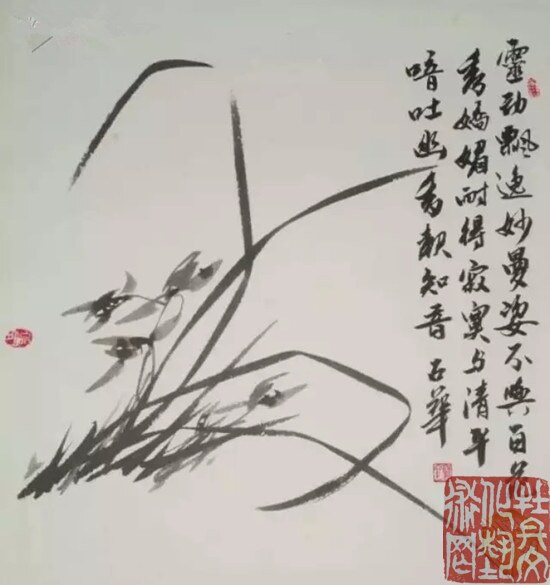 靈动飘逸妙曼姿不與百花
秀嬌媚耐得寂寞与清平
喑吐幽香觀知音 石華